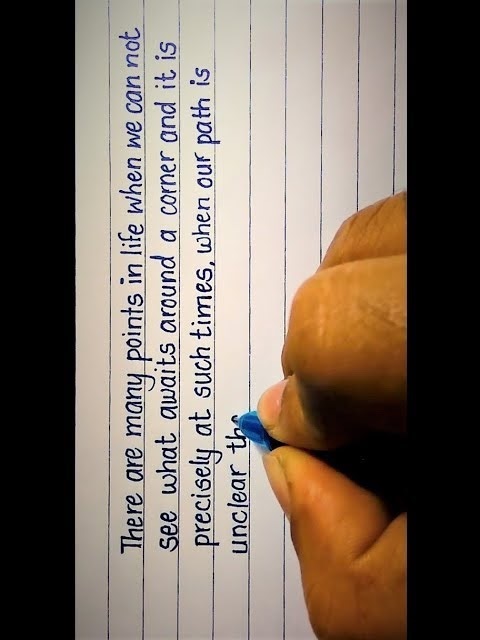 There are many points in life when we can not
see what awaits around a corner and it is
precisely at such times, when our path is
unclear th